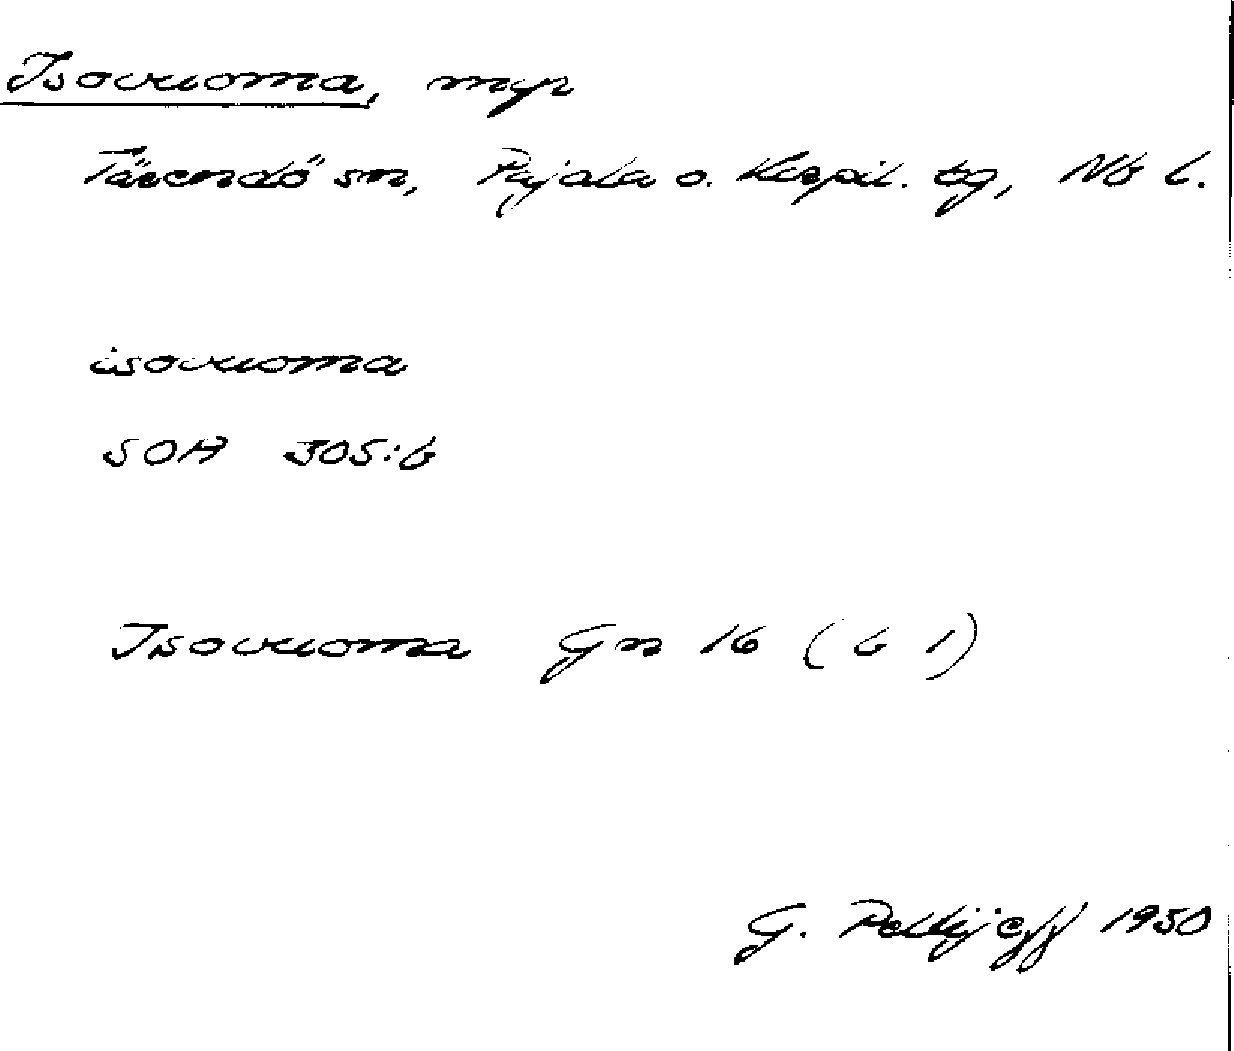 Isovuoma, myr
Tärendö sn, Pajala o. Korpil. tg, Nb l.
isovuoma
SOA 305:6
Isovuoma Gn 16 (6 1)
G. Pellijeff 1950